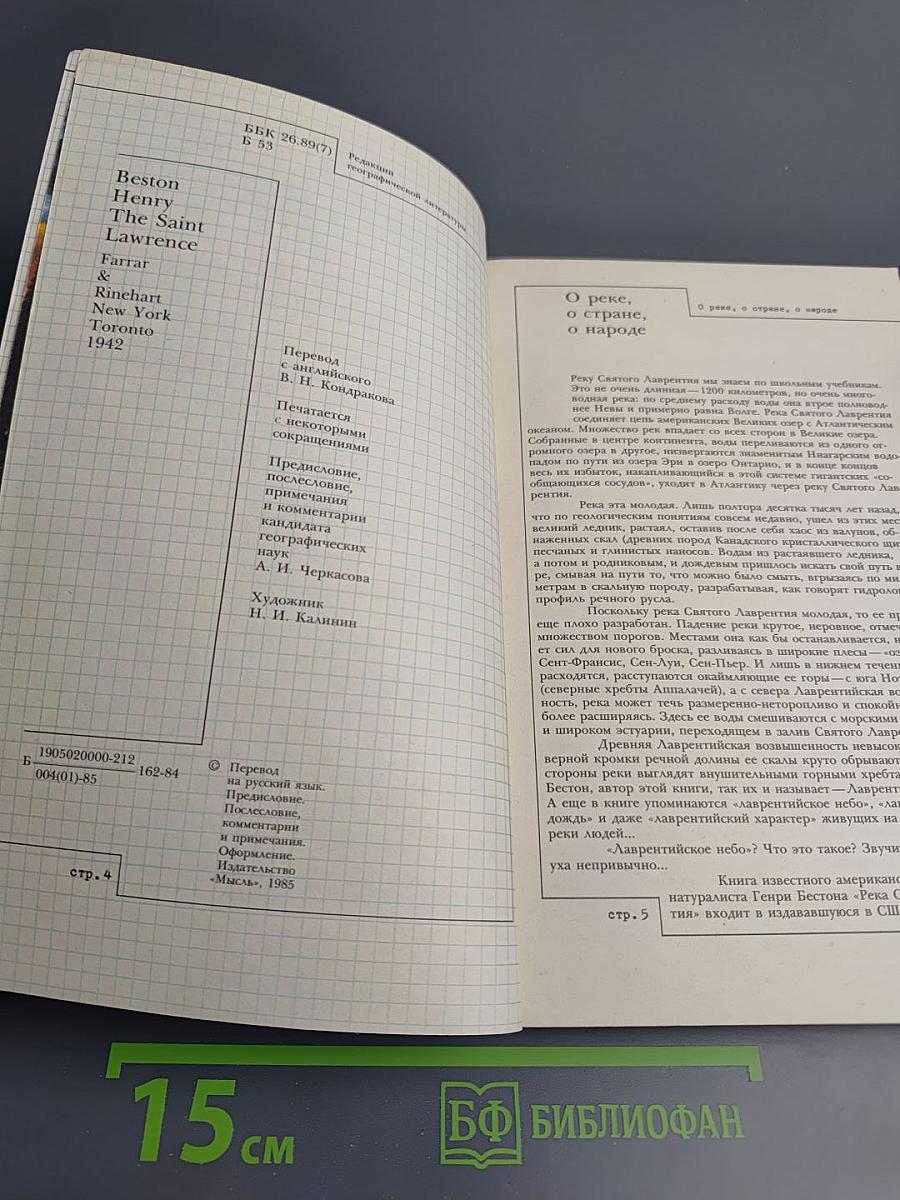 ББК 26.89(7)
Б 53
Редакции
географической литературы
Beston
Henry
The Saint
Lawrence
Farrar
&
Rinehart
New York
Toronto
1942
Перевод
с английского
В. Н. Кондракова
Печатается
с некоторыми
сокращениями
Предисловие,
послесловие,
примечания
и комментарии
кандидата
географических
наук
А. И. Черкасова
Художник
Н. И. Калинин
Б 1905020000-212 162-84
004(01)-85
© Перевод
на русский язык.
Предисловие.
Послесловие,
комментарии
и примечания.
Оформление.
Издательство
«Мысль», 1985
стр.4
О реке,
о стране,
о народе
О реке, о стране, о народе
Реку Святого Лаврентия мы знаем по школьным учебникам.
Это не очень длинная — 1200 километров, но очень много-
водная река: по среднему расходу воды она втрое полновод-
нее Невы и примерно равна Волге. Река Святого Лаврентия
соединяет цепь американских Великих озер с Атлантическим
океаном. Множество рек впадает со всех сторон в Великие озера.
Собранные в центре континента, воды переливаются из одного ог-
ромного озера в другое, низвергаются знаменитым Ниагарским водо-
падом по пути из озера Эри в озеро Онтарио, и в конце концов
весь их избыток, накапливающийся в этой системе гигантских «со-
общающихся сосудов», уходит в Атлантику через реку Святого Лав
рентия.
Река эта молодая. Лишь полтора десятка тысяч лет назад,
что по геологическим понятиям совсем недавно, ушел из этих мес
великий ледник, растаял, оставив после себя хаос из валунов, об-
наженных скал (древних пород Канадского кристаллического щи
песчаных и глинистых наносов. Водам из растаявшего ледника,
а потом и родниковым, и дождевым пришлось искать свой путь в
ре, смывая на пути то, что можно было смыть, вгрызаясь по ми
метрам в скальную породу, разрабатывая, как говорят гидроло
профиль речного русла.
Поскольку река Святого Лаврентия молодая, то ее пр
еще плохо разработан. Падение реки крутое, неровное, отмеч
множеством порогов. Местами она как бы останавливается, н
ет сил для нового броска, разливаясь в широкие плесы — «оз
Сент-Франсис, Сен-Луи, Сен-Пьер. И лишь в нижнем течени
расходятся, расступаются окаймляющие ее горы — с юга Нот
(северные хребты Аппалачей), а с севера Лаврентийская воз
ность, река может течь размеренно-неторопливо и спокойн
более расширяясь. Здесь ее воды смешиваются с морскими
и широком эстуарии, переходящем в залив Святого Лавре
Древняя Лаврентийская возвышенность невысок
верной кромки речной долины ее скалы круто обрывают
стороны реки выглядят внушительными горными хребта
Бестон, автор этой книги, так их и называет — Лаврент
А еще в книге упоминаются «лаврентийское небо», «лав
дождь» и даже «лаврентийский характер» живущих на
реки людей...
«Лаврентийское небо»? Что это такое? Звучит
уха непривычно...
Книга известного американс
натуралиста Генри Бестона «Река С
тия» входит в издававшуюся в США
стр.5
15 см
БФ БИБЛИОФАН